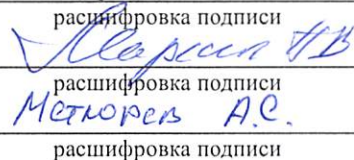 расшифровка подписи
Н В
расшифровка подписи
А.С.
расшифровка подписи